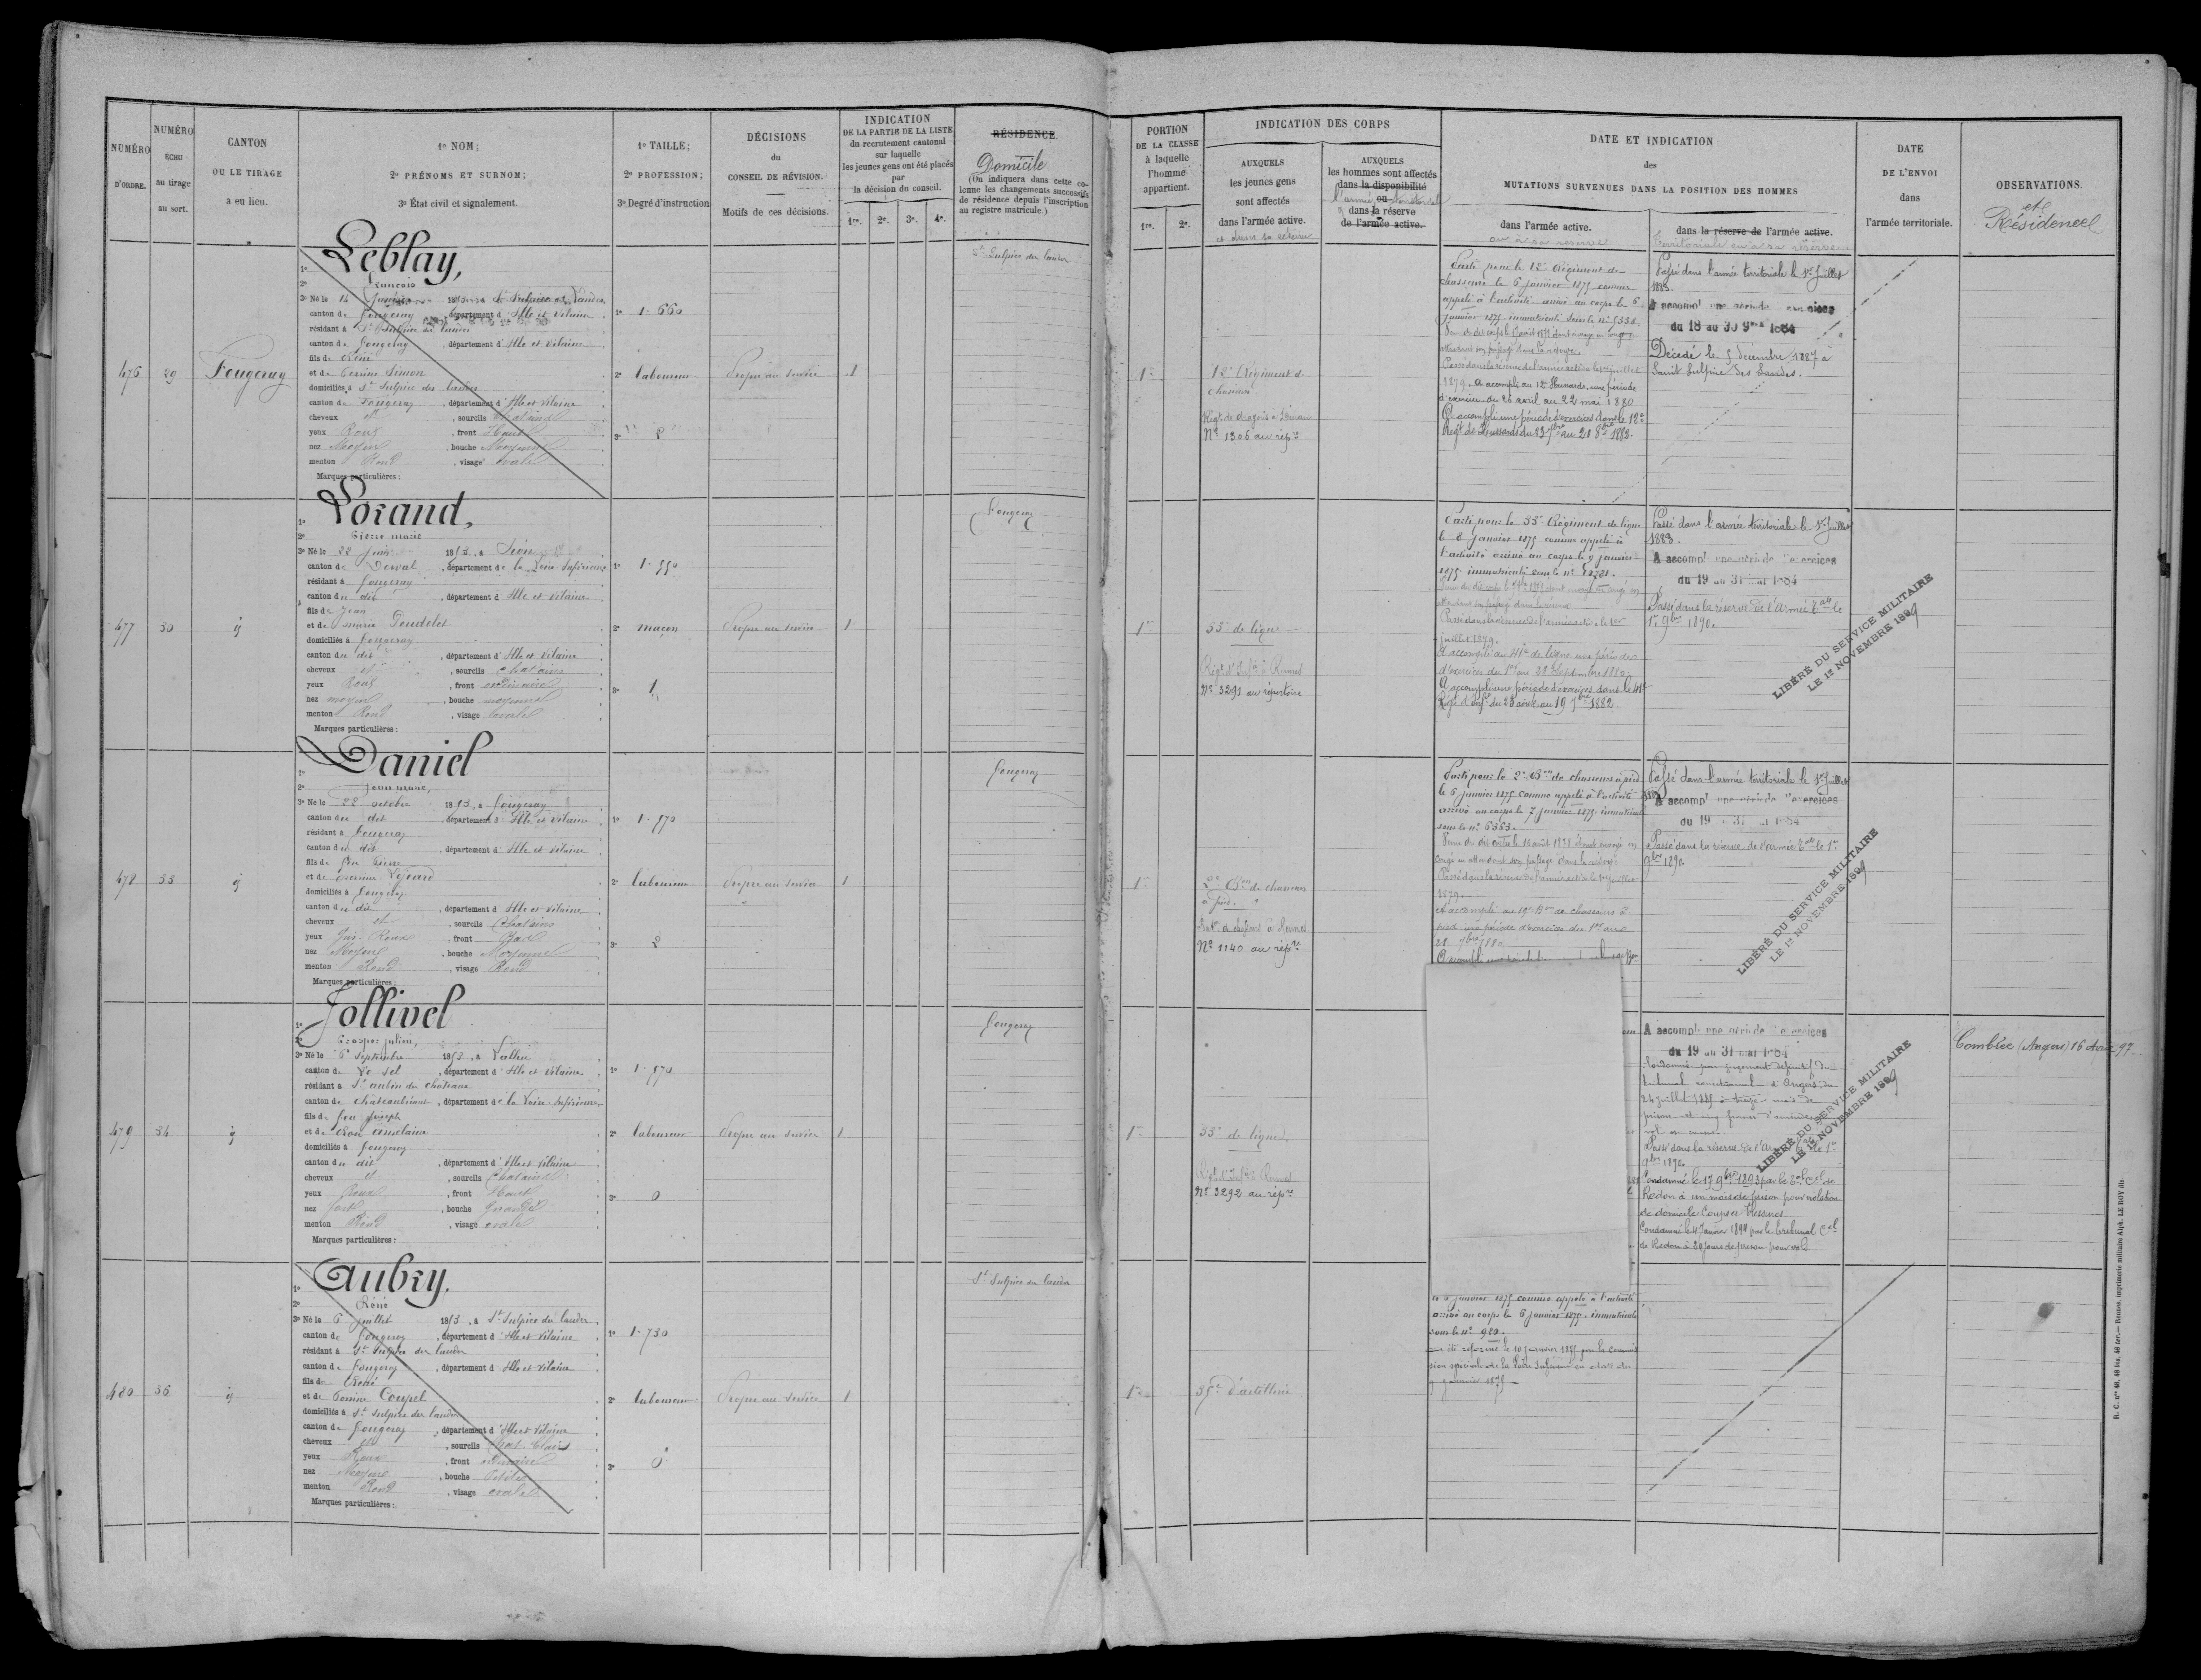 NUMÉRO D'ORDRE.
NUMÉRO ÉCHU au tirage au sort.
CANTON OU LE TIRAGE a eu lieu.
1º NOM;
2º PRÉNOMS ET SURNOM;
3º État civil et signalement.
1º TAILLE;
2º PROFESSION;
3º Degré d'instruction
DÉCISIONS
du
CONSEIL DE RÉVISION.
Motifs de ces décisions.
INDICATION
DE LA PARTIE DE LA LISTE
du recrutement cantonal
sur laquelle
les jeunes gens ont été placés
par
la décision du conseil.
1re. 2e. 3e. 4e.
RÉSIDENCE.
Domicile
(On indiquera dans cette co-
lonne les changements successifs
de résidence depuis l'inscription
au registre matricule.)
PORTION
DE LA CLASSE
à laquelle
l'homme
appartient.
1re. 2e.
INDICATION DES CORPS
AUXQUELS
les jeunes gens
sont affectés
dans l'armée active.
AUXQUELS
les hommes sont affectés
dans la disponibilité
ou
dans la réserve
de l'armée active.
DATE ET INDICATION
des
MUTATIONS SURVENUES DANS LA POSITION DES HOMMES
dans l'armée active.
ou à sa réserve
dans la réserve de l'armée active.
territoriale ou à sa réserve
DATE
DE L'ENVOI
dans
l'armée territoriale.
OBSERVATIONS.
et
Résidence
476
29
Fougeray
Leblay,
2º François
3º Né le 14
canton de Fougeray, département d'Ille et Vilaine
résidant à St Sulpice des landes
canton de Fougeray, département d'Ille et Vilaine
fils de René
et de Perrine Simon
domiciliés à St Sulpice des landes
canton de Fougeray, département d'Ille et Vilaine
cheveux et, sourcils Chatains
yeux Roux, front Haut
nez Moyen, bouche Moyenne
menton Rond, visage ovale
Marques particulières :
1º 1.660
2º laboureur
3º 2
Propre au service
1
St Sulpice des landes
1re
12e Régiment de
chasseurs
Nº 1306 au répre
Parti pour le 12e Régiment de
chasseurs le 6 janvier 1875 comme
appelé à l'activité arrivé au corps le 6
janvier 1875 immatriculé sous le nº
attendant son passage dans la réserve.
Passé dans la réserve de l'armée active le 1er juillet
1879. A accompli au 12e Hussards, une période
d'exercices du 26 avril au 22 mai 1880
A accompli une période d'exercices dans le 12e
Regt de Hussards du 23 7bre au 20 8bre 1882.
Passé dans l'armée territoriale le 1er Juillet
1883.
A accompl une période d'exercices
du 18 au 30 9bre 1884
Décédé le 5 décembre 1887 à
Saint Sulpice des Landes.
477
30
id
Lorand,
2º Pierre marie
3º Né le 22 Juin 1853, à Sion
canton de Derval, département de la Loire Inférieure
résidant à Fougeray
canton du dit, département d'Ille et Vilaine
fils de Jean
et de marie
domiciliés à Fougeray
canton du dit, département d'Ille et Vilaine
cheveux et, sourcils chatains
yeux Roux, front ordinaire
nez moyen, bouche moyenne
menton Rond, visage ovale
Marques particulières :
1º 1.550
2º maçon
3º 1
Propre au service
1
Fougeray
1re
33e de ligne
Regt d'Infie à Rennes
Nº 3291 au répertoire
Parti pour le 33e Régiment de ligne
le 8 janvier 1875 comme appelé à
l'activité arrivé au corps le 9 janvier
1875 immatriculé sous le nº
attendant son passage dans la réserve
Passé dans la réserve de l'armée active le 1er
juillet 1879.
A accompli au 41e de ligne une période
d'exercices du 1er au 28 Septembre 1880
A accompli une période d'exercices dans le 41e
Regt d'Infie du 23 août au 19 7bre 1882
Passé dans l'armée territoriale le 1er Juillet
1883.
A accompl une période d'exercices
du 19 au 31 mai 1884
Passé dans la réserve de l'Armée Tale le
1er 9bre 1890.
LIBÉRÉ DU SERVICE MILITAIRE
LE 1er NOVEMBRE 1899
478
33
id
Daniel
2º Jean marie,
3º Né le 22 octobre 1853, à Fougeray
canton du dit, département d'Ille et Vilaine
résidant à Fougeray
canton du dit, département d'Ille et Vilaine
fils de feu Pierre
et de Perrine Légard
domiciliés à Fougeray
canton du dit, département d'Ille et Vilaine
cheveux et, sourcils Chatains
yeux Gris Roux, front Bas
nez Moyen, bouche Moyenne
menton Rond, visage Rond
Marques particulières :
1º 1.570
2º laboureur
3º 2
Propre au service
1
Fougeray
1re
2e Bon de chasseurs
à pied
Nº 1140 au répre
Parti pour le 2e Bon de chasseurs à pied
le 6 janvier 1875 comme appelé à l'activité
arrivé au corps le 7 janvier 1875 immatriculé
sous le nº 6353.
congé en attendant son passage dans la réserve
Passé dans la réserve de l'armée active le 1er juillet
1879.
A accompli au 19e Bon de chasseurs à
pied une période d'exercices du 1er au
28 7bre 1880
Passé dans l'armée territoriale le 1er Juillet
1883
A accompl une période d'exercices
du 19 au 31 mai 1884
Passé dans la réserve de l'armée Tale le 1er
9bre 1890
LIBÉRÉ DU SERVICE MILITAIRE
LE 1er NOVEMBRE 1899
479
34
id
Jollivel
2º Prosper Julien,
3º Né le 6 Septembre 1853, à
canton de Le Sel, département d'Ille et Vilaine
résidant à St aubin des chateaux
canton de chateaubriant, département de la Loire Inférieure
fils de feu Joseph
et de
domiciliés à Fougeray
canton du dit, département d'Ille et Vilaine
cheveux et, sourcils Chatains
yeux Roux, front Haut
nez fort, bouche Grande
menton Rond, visage ovale
Marques particulières :
1º 1.570
2º laboureur
3º 0
Propre au service
1
Fougeray
1re
33e de ligne
Regt d'Infie à Rennes
Nº 3292 au répre
A accompl une période d'exercices
du 19 au 31 mai 1884
Condamné par jugement définitif du
tribunal correctionnel d'Angers du
24 juillet 1885 à treize mois de
prison et cinq francs d'amende
Passé dans la réserve de l'Armée Tale le 1er
9bre 1890
Condamné le 17 9bre 1893 par le Tal Cel de
Redon à un mois de prison pour violation
de domicile Coups et blessures
Condamné le 4 Janvier 1894 par le tribunal Cel
de Redon à 20 jours de prison pour vol
LIBÉRÉ DU SERVICE MILITAIRE
LE 1er NOVEMBRE 1899
Combrée (Angers) 16 Avril 97
480
36
id
Aubry.
2º René
3º Né le 6 Juillet 1853, à St Sulpice des landes
canton de Fougeray, département d'Ille et Vilaine
résidant à St Sulpice des landes
canton de Fougeray, département d'Ille et Vilaine
fils de René
et de Perrine Coupel
domiciliés à St Sulpice des landes
canton de Fougeray, département d'Ille et Vilaine
cheveux et, sourcils Chat. Clairs
yeux Roux, front ordinaire
nez Moyen, bouche Petite
menton Rond, visage ovale
Marques particulières :
1º 1.730
2º laboureur
3º 0
Propre au service
1
St Sulpice des landes
1re
35e d'artillerie
le 5 janvier 1875 comme appelé à l'activité
arrivé au corps le 6 janvier 1875 immatriculé
sous le nº 920.
a été réformé le 10 janvier 1875 par la commis
sion spéciale de la Loire Inférieure en date du
9 janvier 1875
R. C. nos 48, 48 bis, 48 ter.— Rennes, imprimerie militaire Alph. LE ROY fils